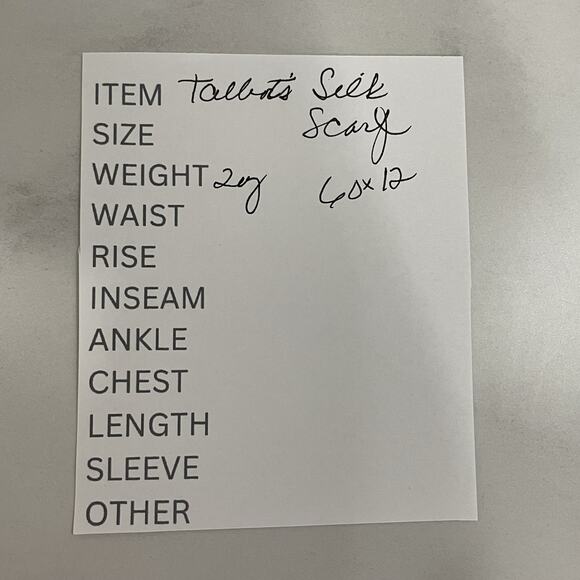 ITEM Talbot's Silk
Scarf
SIZE
WEIGHT 2oz 60x12
WAIST
RISE
INSEAM
ANKLE
CHEST
LENGTH
SLEEVE
OTHER